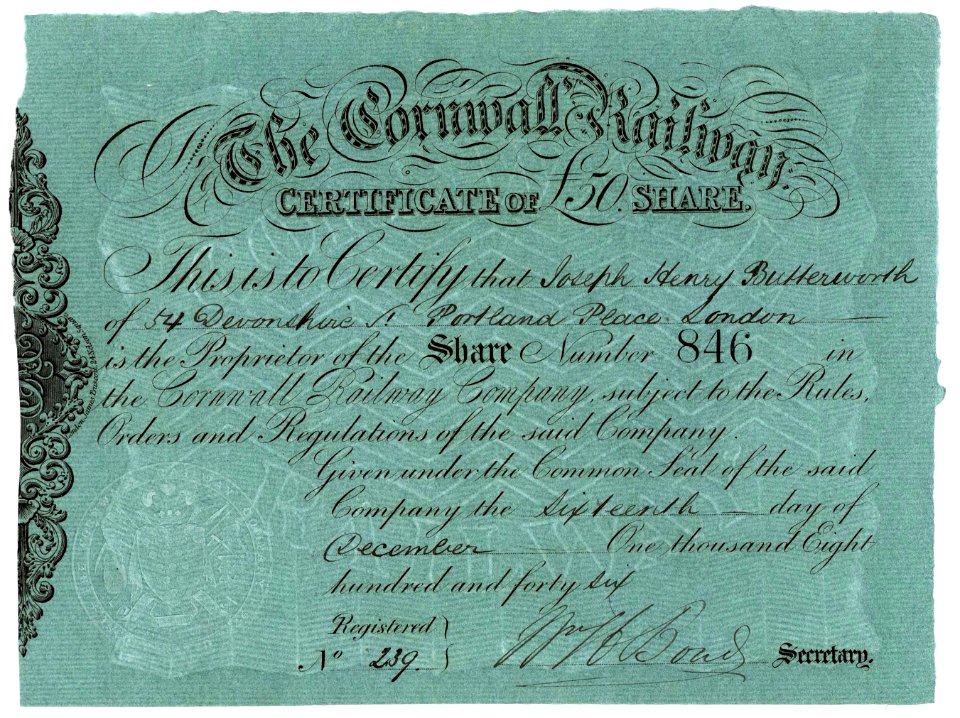 The Cornwall Railway.
CERTIFICATE OF £50. SHARE.
This is to Certify that Joseph Henry Butterworth
of 54 Devonshire St Portland Place London
is the Proprietor of the Share Number 846 in
the Cornwall Railway Company, subject to the Rules,
Orders and Regulations of the said Company.
Given under the Common Seal of the said
Company the Sixteenth day of
December One thousand Eight
hundred and forty six
Registered
No 239
Wm H Bond Secretary.